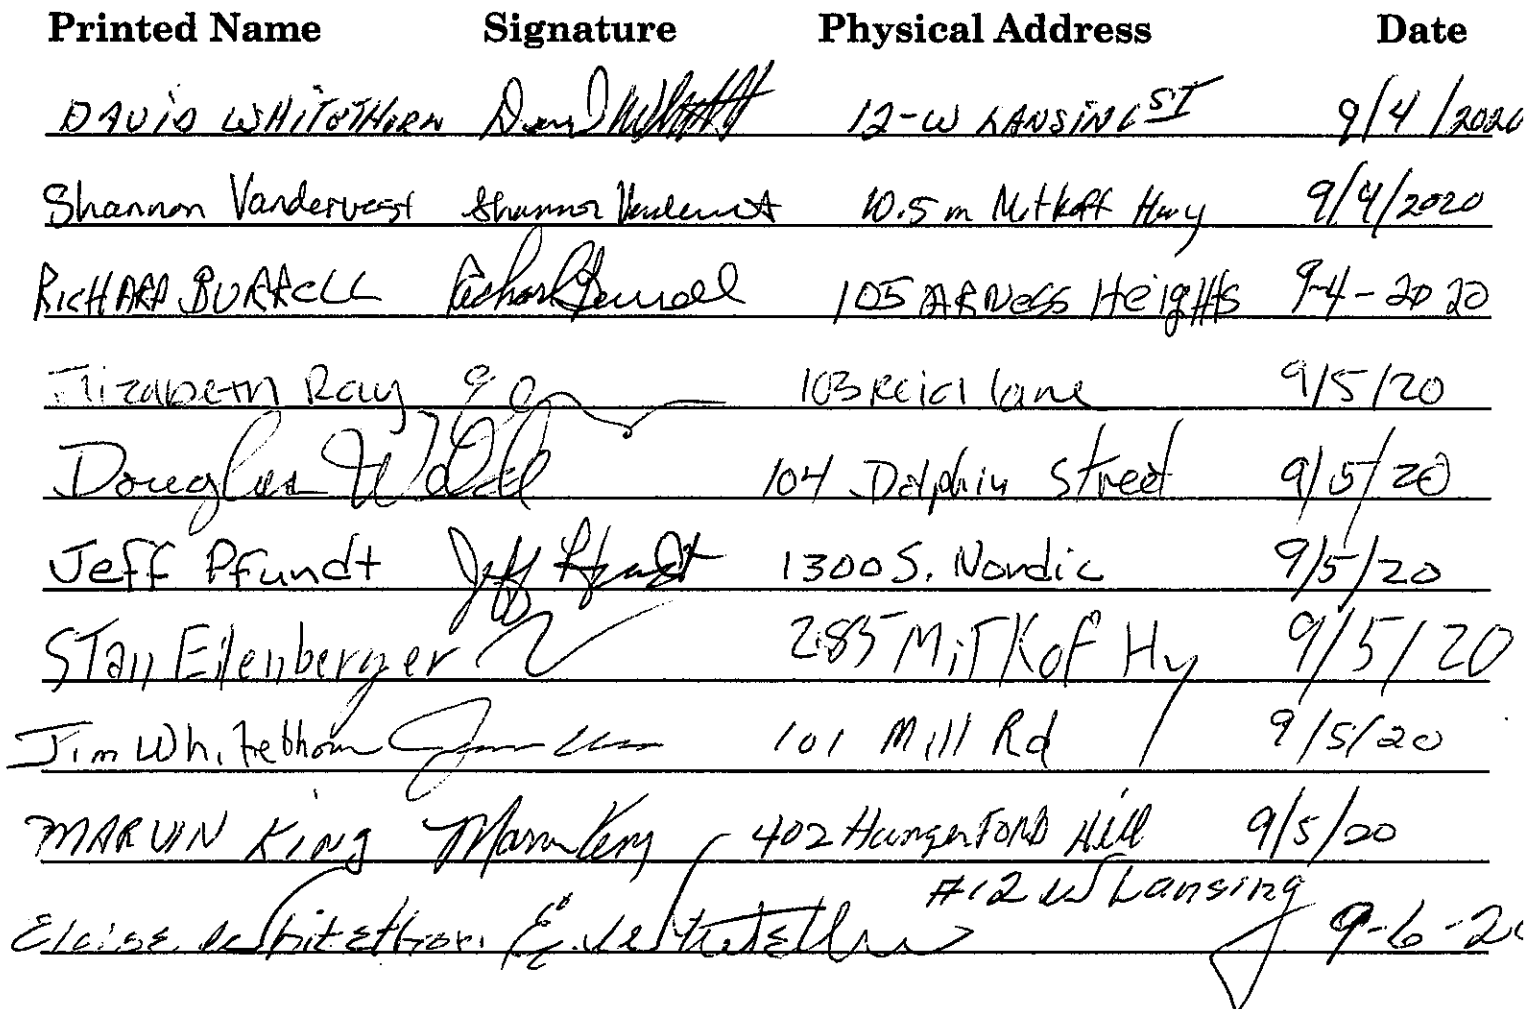 Printed Name Signature Physical Address Date
DAVID WHITETHORN David 12-W LANSING ST 9/4/2020
Shannon Vandervest Shannon Vandervest 10.5 m Mitkoff Hwy 9/4/2020
RICHARD BURRELL Richard Burrell 105 ARNESS HeigHts 9-4-2020
Elizabeth Ray 103 Reid lane 9/5/20
Douglas Welde 104 Dolphin Street 9/5/20
Jeff Pfundt Jeff Pfundt 1300 S. Nordic 9/5/20
STan Eilenberger 285 MiTKof Hy 9/5/20
Jim Whitethorn 101 Mill Rd 9/5/20
MARVIN KING Marvin King 402 HungerFORD Hill 9/5/20
Eloise Whitethorn E. Whitethorn #12 W Lansing 9-6-20